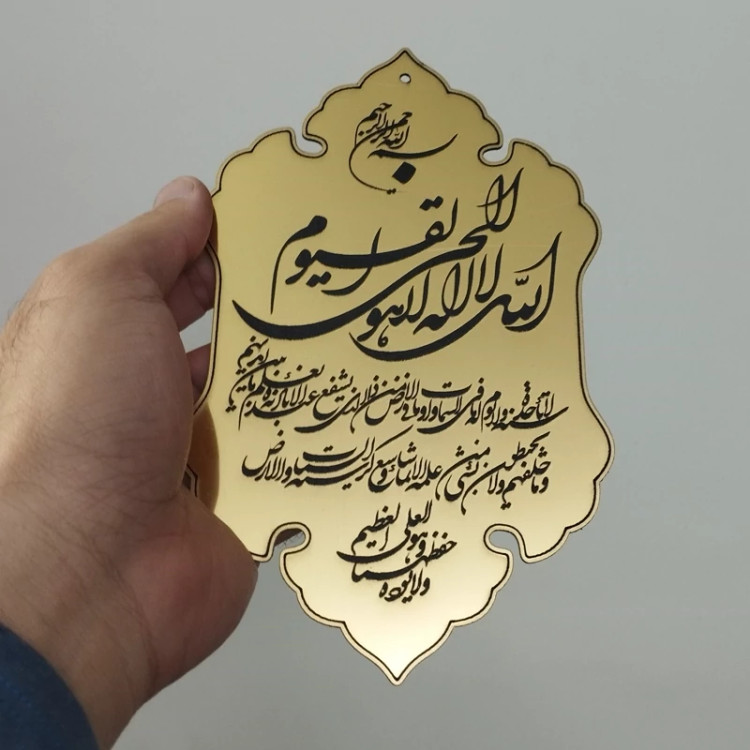 بسم الله الرحمن الرحیم
الله لا اله الا هو الحی القیوم
لا تاخذه سنة و لا نوم له ما فی السماوات و ما فی الارض من ذا الذی یشفع عنده الا باذنه یعلم ما بین ایدیهم
و ما خلفهم و لا یحیطون بشیء من علمه الا بما شاء وسع کرسیه السماوات و الارض
و لا یوده حفظهما و هو العلی العظیم